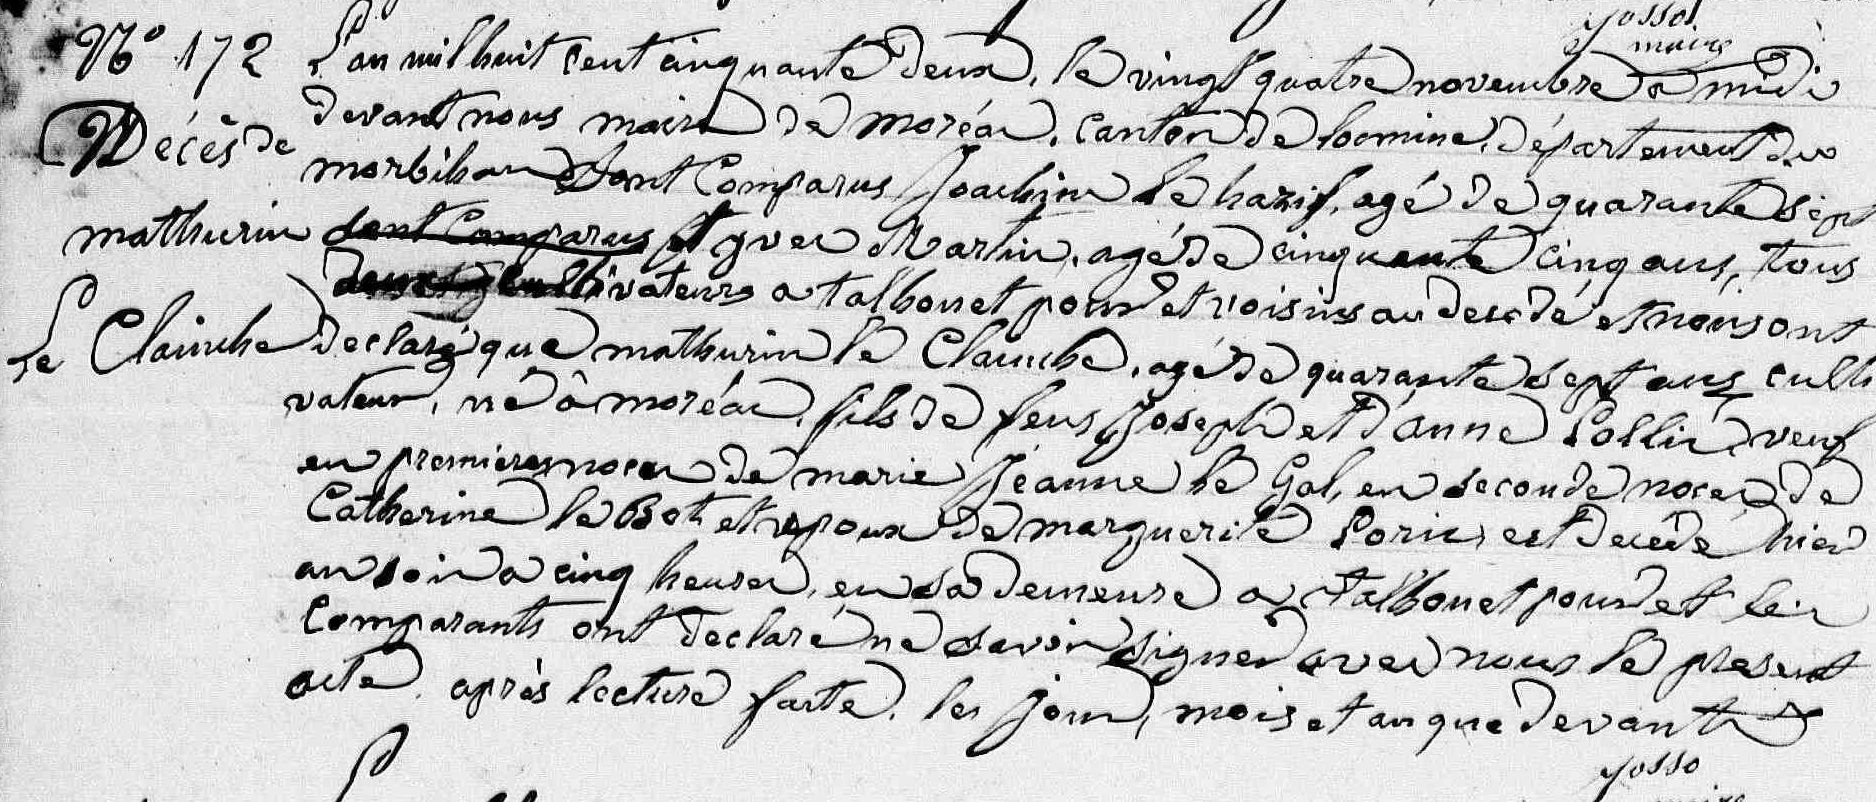 yosso
maire
N° 172
L'an mil huit cent cinquante deux, le vingt quatre novembre a midi
Décès de
devant nous maire de moréac, canton de locmine, département du
morbihan sont Comparus Joachim le hazif, agé de quarante sept
mathurin
sont Comparus et yves Martin, agé de cinquante cinq ans, tous
deux cultivateurs a talhouet pourdet voisins au décédé et nous ont
le Clainche
declaré que mathurin le Clainche, agé de quarante sept ans culti
vateur, né à moréac, fils de feus Joseph et d'anne Lollic, veuf
en premieres noces de marie Jéanne le Gal, en seconde noces de
Catherine le Bot et epoux de marguerite Loric, est decédé hier
au soir a cinq heures, en sa demeure a talhouet pourdet les
Comparants ont declaré ne savoir signer avec nous le present
acte, après lecture faite. les jour, mois et an que devant
yosso
maire